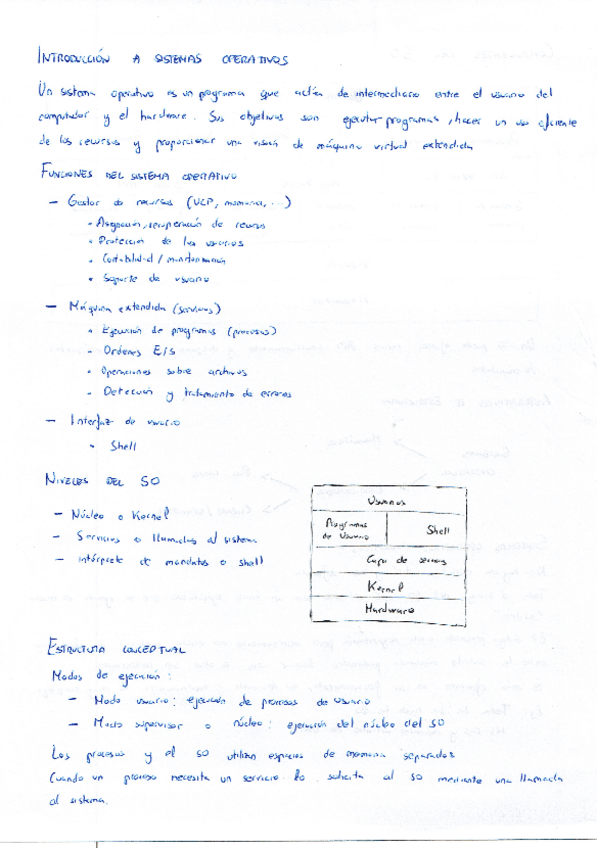 INTRODUCCIÓN A SISTEMAS OPERATIVOS
Un sistema operativo es un programa que actúa de intermediario entre el usuario del
computador y el hardware. Sus objetivos son ejecutar programas, hacer un uso eficiente
de los recursos y proporcionar una visión de máquina virtual extendida
FUNCIONES DEL SISTEMA OPERATIVO
- Gestor de recursos (UCP, memoria, ...)
• Asignación, recuperación de recursos
• Protección de los usuarios
• Contabilidad / monitorización
• Soporte de usuario
- Máquina extendida (servicios)
• Ejecución de programas (procesos)
• Ordenes E/S
• Operaciones sobre archivos
• Detección y tratamiento de errores
- Interfaz de usuario
• Shell
NIVELES DEL SO
- Núcleo o Kernel
- Servicios o llamadas al sistema
- intérprete de mandatos o shell
Usuarios
Programas de Usuario
Shell
Capa de servicios
Kernel
Hardware
ESTRUCTURA CONCEPTUAL
Modos de ejecución:
- Modo usuario: ejecución de procesos de usuario
- Modo supervisor o núcleo: ejecución del núcleo del SO
Los procesos y el SO utilizan espacios de memoria separados
Cuando un proceso necesita un servicio lo solicita al SO mediante una llamada
al sistema.